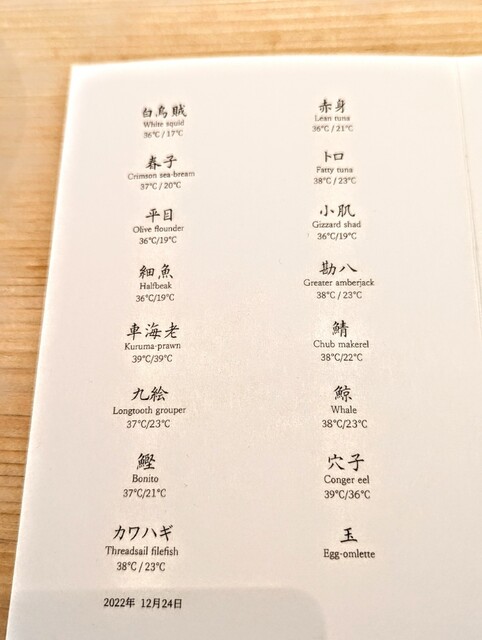 白烏賊
White squid
36℃/17℃
春子
Crimson sea-bream
37℃/20℃
平目
Olive flounder
36℃/19℃
細魚
Halfbeak
36℃/19℃
車海老
Kuruma-prawn
39℃/39℃
九絵
Longtooth grouper
37℃/23℃
鰹
Bonito
37℃/21℃
カワハギ
Threadsail filefish
38℃/23℃
赤身
Lean tuna
36℃/21℃
トロ
Fatty tuna
38℃/23℃
小肌
Gizzard shad
36℃/19℃
勘八
Greater amberjack
38℃/23℃
鯖
Chub makerel
38℃/22℃
鯨
Whale
38℃/23℃
穴子
Conger eel
39℃/36℃
玉
Egg-omlette
2022年 12月24日